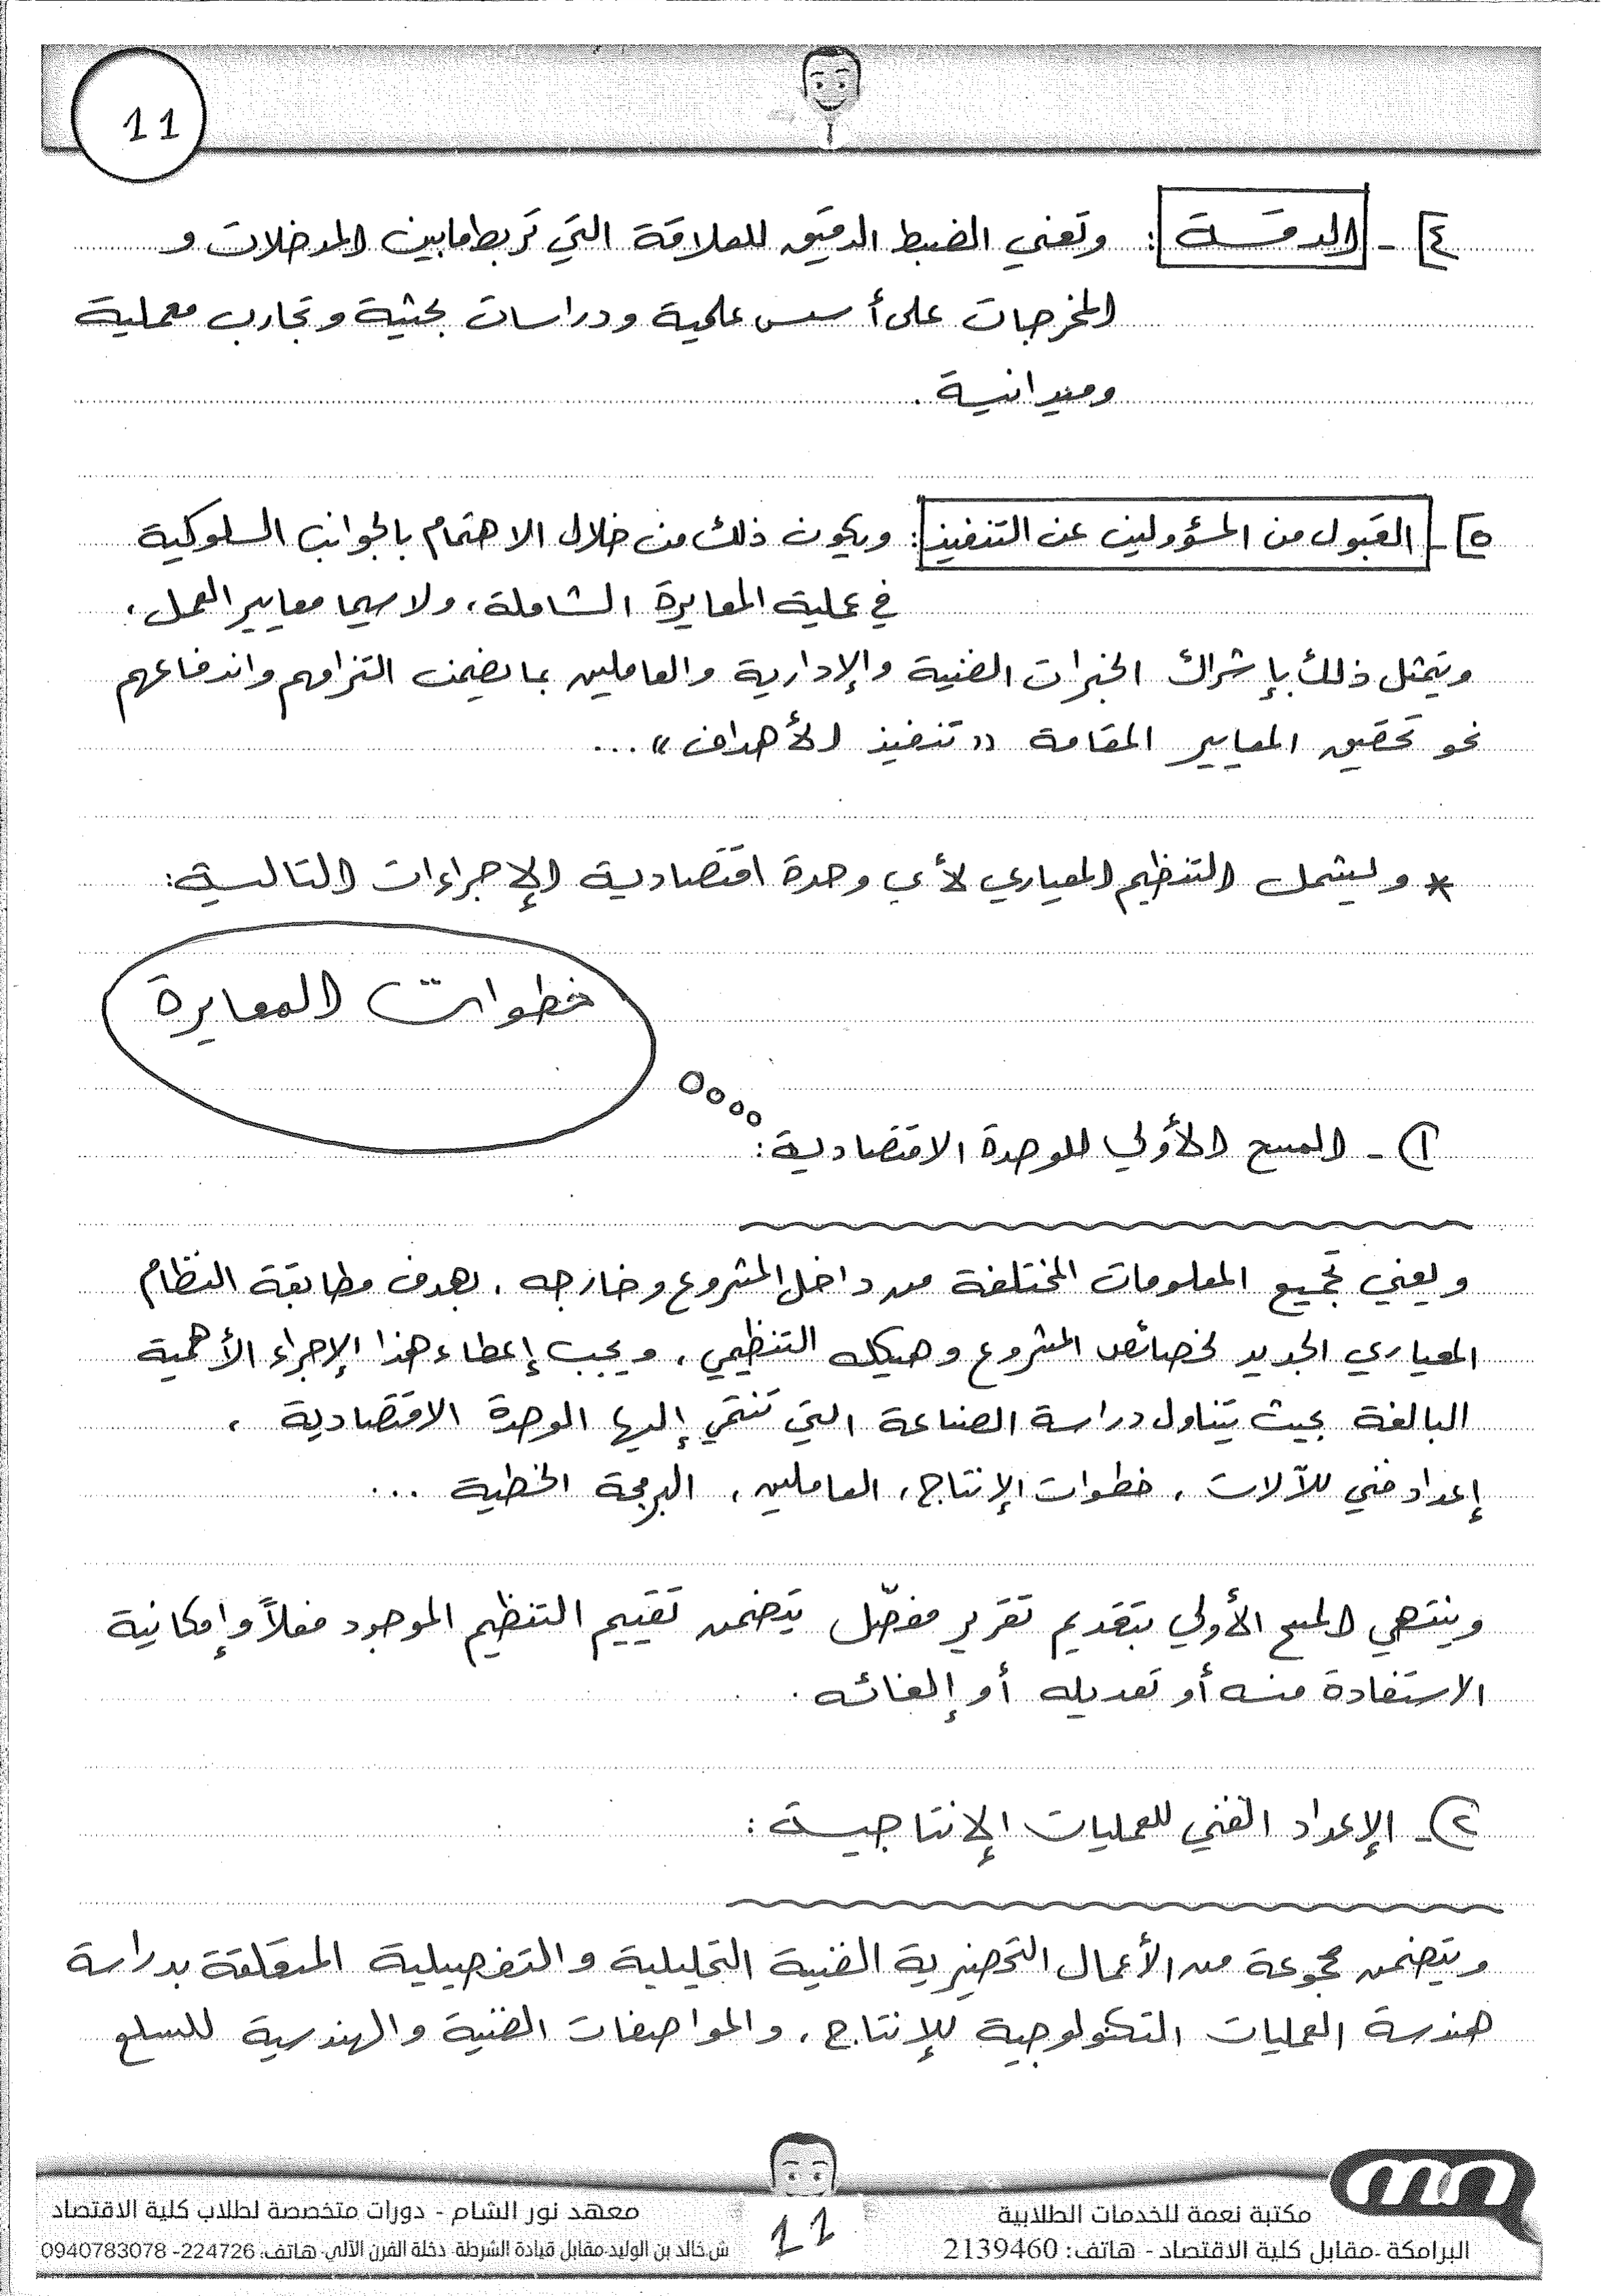 11
٤] - الدقة : وتعني الضبط الدقيق للعلاقة التي تربط مابين المدخلات و
المخرجات على أسس علمية ودراسات بحثية وتجارب معملية
وميدانية .
٥] - القبول من المسؤولين عن التنفيذ : ويكون ذلك من خلال الاهتمام بالجوانب السلوكية
في عملية المعايرة الشاملة ، ولا سيما معايير العمل ،
ويتمثل ذلك بإشراك الخبرات الفنية والإدارية والعاملين بما يضمن التزامهم واندفاعهم
نحو تحقيق المعايير المقامة « تنفيذ الأهداف » ...
* ويشمل التنظيم المعياري لأي وحدة اقتصادية الإجراءات التالية :
خطوات المعايرة
١) - المسح الأولي للوحدة الاقتصادية :
ويعني تجميع المعلومات المختلفة من داخل المشروع وخارجه ، بهدف مطابقة النظام
المعياري الجديد لخصائص المشروع وهيكله التنظيمي ، ويجب إعطاء هذا الإجراء الأهمية
البالغة بحيث يتناول دراسة الصناعة التي تنتمي إليها الوحدة الاقتصادية ،
إعداد فني للآلات ، خطوات الإنتاج ، العاملين ، البرمجة الخطية ...
وينتهي المسح الأولي بتقديم تقرير مفصّل يتضمن تقييم التنظيم الموجود فعلاً وإمكانية
الاستفادة منه أو تعديله أو إلغائه .
٢) - الإعداد الفني للعمليات الإنتاجية :
ويتضمن مجموعة من الأعمال التحضيرية الفنية التحليلية والتفصيلية المتعلقة بدراسة
هندسة العمليات التكنولوجية للإنتاج ، والمواصفات الفنية والهندسية للسلع
مكتبة نعمة للخدمات الطلابية
البرامكة - مقابل كلية الاقتصاد - هاتف: 2139460
11
معهد نور الشام - دورات متخصصة لطلاب كلية الاقتصاد
ش.خالد بن الوليد-مقابل قيادة الشرطة- دخلة الفرن الآلي- هاتف: 224726- 0940783078